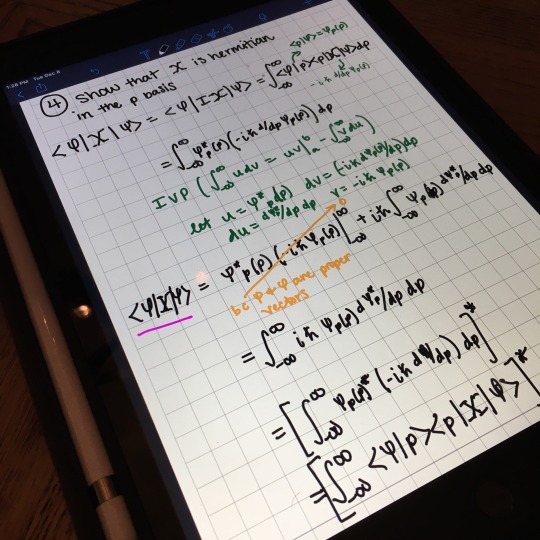 1:28 PM Tue Dec 8
④ Show that X is hermitian
in the p basis
<p|ψ> = ψp(p)
<φ|X|ψ> = <φ|IX|ψ> = ∫_{-∞}^{∞} <φ|p><p|X|ψ>dp
-iħ d/dp ψp(p)
= ∫_{-∞}^{∞} φ*p(p) (-iħ d/dp ψp(p)) dp
IVP (∫_{-∞}^{∞} u dv = uv|_a^b - ∫_{-∞}^{∞} v du)
let u = φ*p(p) dv =
du = dφ*/dp dp v = -iħ ψp(p)
<φ|X|ψ> = φ*p(p) (-iħ ψp(p)) |_{-∞}^{∞} + iħ ∫_{-∞}^{∞} ψp(p) dφ*/dp dp
0
bc ψ & φ are proper
vectors
= ∫_{-∞}^{∞} iħ ψp(p) dφp*/dp dp
= [∫_{-∞}^{∞} ψp(p)* (-iħ dφ/dp) dp]*
= [∫_{-∞}^{∞} <ψ|p><p|X|φ>]*